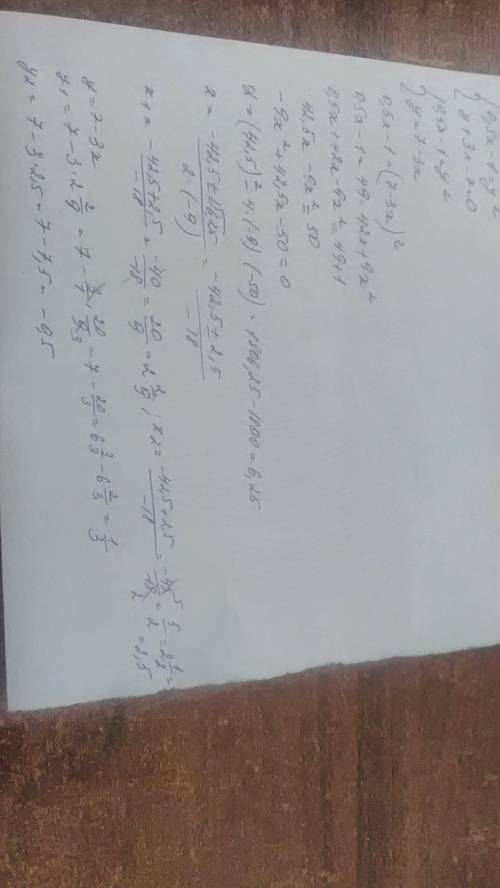 {0,5x-1=y²
{y+3x-7=0
{0,5x-1=y²
{y=7-3x
0,5x-1=(7-3x)²
0,5x-1=49-42x+9x²
0,5x+42x-9x²=49+1
42,5x-9x²=50
-9x²+42,5x-50=0
D=(42,5)²-4·(-9)·(-50)=1806,25-1800=6,25
x=(-42,5±√6,25)/(2·(-9))=(-42,5±2,5)/(-18)
x₁=(-42,5+2,5)/(-18)=(-40)/(-18)=20/9=2 2/9; x₂=(-42,5+2,5)/(-18)=(-45)/(-18)=5/2=2 1/2=2,5
y=7-3x
y₁=7-3·2 2/9=7-3/1·20/9=7-20/3=6 3/3-6 2/3=1/3
y₂=7-3·2,5=7-7,5=-0,5